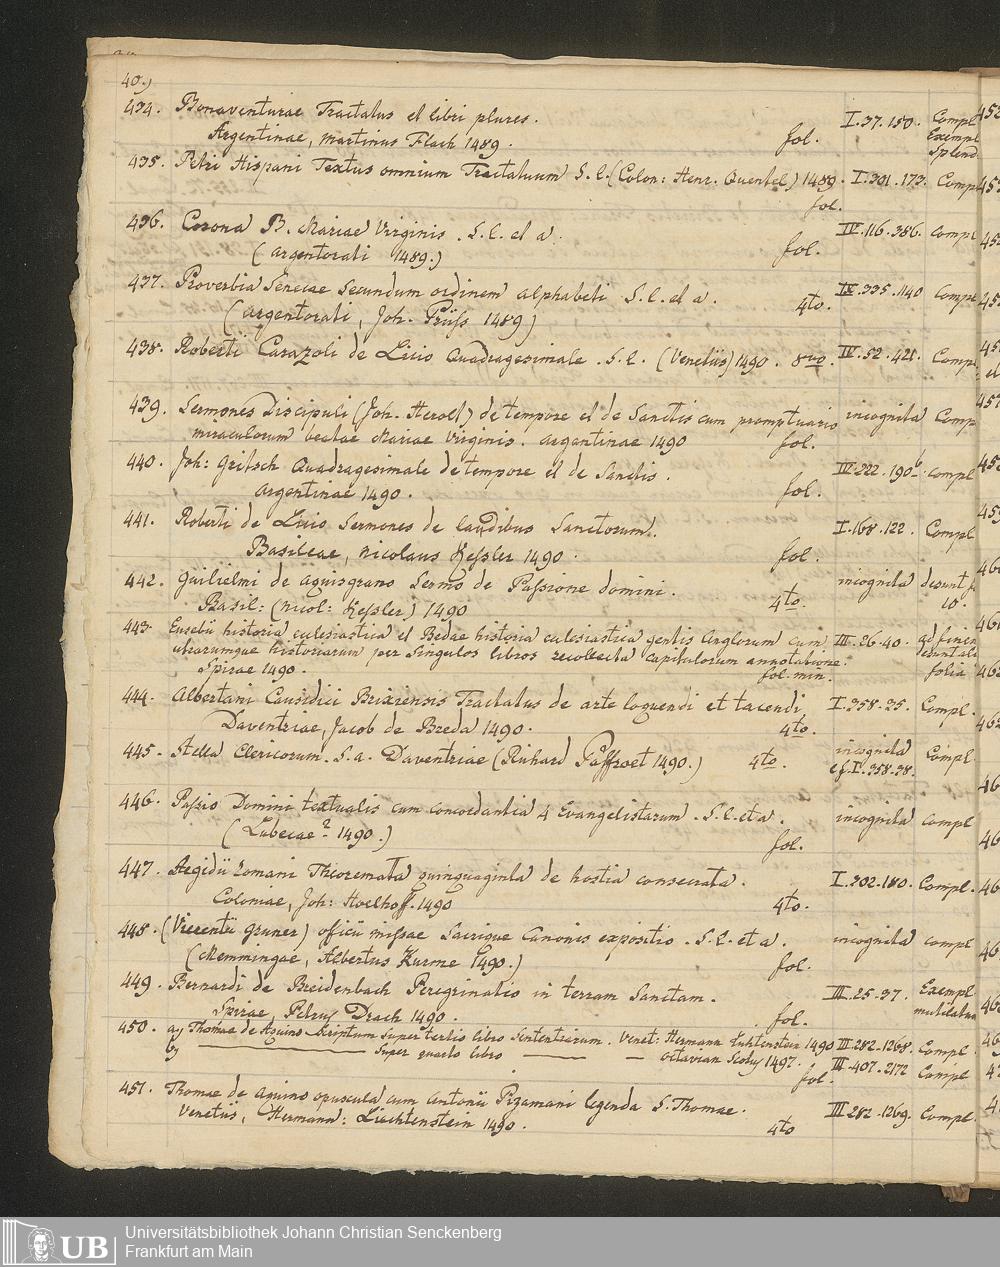 40.)
434. Bonaventurae Tractatus et libri plures. I.37.150. Compl
Argentinae, Martinus Flach 1489. fol. Exempl
Splend.
435. Petri Hispani Textus omnium Tractatuum S.l. (Colon: Henr. Quentel) 1489. I.301.173. Comp
fol.
436. Corona B. Mariae Virginis. S.l. et a. IV.116.386. Compl
(argentorati 1489.) fol.
437. Proverbia Senecae secundum ordinem alphabeti S.l. et a. IV.335.1140 Compl
(argentorati, Joh. Prüss 1489) 4to.
438. Roberti Carazoli de Licio Quadragesimale. S.l. (Venetiis) 1490. 8vo. IV.52.421. Comp.
439. Sermones Discipuli (Joh. Herolt) de tempore et de Sanctis cum promptuario incognita Comp
miraculorum beatae Mariae Virginis. argentinae 1490 fol.
440. Joh: Gritsch Quadragesimale de tempore et de Sanctis. IV.222.190b. compl
argentinae 1490. fol.
441. Roberti de Licio Sermones de laudibus Sanctorum. I.168.122. Compl
Basileae, Nicolaus Kessler 1490. fol.
442. Guilielmi de aquisgrano Sermo de Passione domini. incognita desunt f
Basil: (Nicol: Kessler) 1490 4to. 10.
443. Eusebii historia eclesiastica et Bedae historia eclesiastica gentis Anglorum cum III.26.40. ad finem
utrarumque historiarum per Singulos libros recollecta Capitulorum annotatione. desunt
Spirae 1490. fol. min. folia
444. Albertani Causidici Brixiensis Tractatus de arte loquendi et tacendi I.358.35. Compl.
Daventriae, Jacob de Breda 1490. 4to.
445. Stella Clericorum. S.a. Daventriae (Richard Paffroet 1490.) 4to. incognita Compl
cf. I.358.38.
446. Passio Domini textualis cum concordantia 4 Evangelistarum. S.l. et a. incognita compl
(Lubecae? 1490.) fol.
447. Aegidii Romani Theoremata quinquaginta de hostia consecrata. I.302.180. Compl.
Coloniae, Joh: Hoelhoff. 1490 4to.
448. (Vicentii Gruner) officii missae Sacrique Canonis expositio. S.l. et a. incognita compl
(Memmingae, Albertus Kurme 1490.) fol.
449. Bernardi de Breidenbach Peregrinatio in terram Sanctam. III.25.37. Exempl
Spirae, Petrus Drach 1490. fol. mutilatum
450. a) Thomae de Aquino Scriptum super tertio libro Sententiarum. Venet: Hermann Lichtenstein 1490 III.282.1268. Compl.
b) — Super quarto libro — — octavian Scotus 1497. III.407.2172 Compl
fol.
451. Thomae de Aquino opuscula cum Antonii Pizamani legenda S. Thomae. III.282.1269. Compl.
Venetiis, Hermann: Liechtenstein 1490. 4to
UB
Universitätsbibliothek Johann Christian Senckenberg
Frankfurt am Main